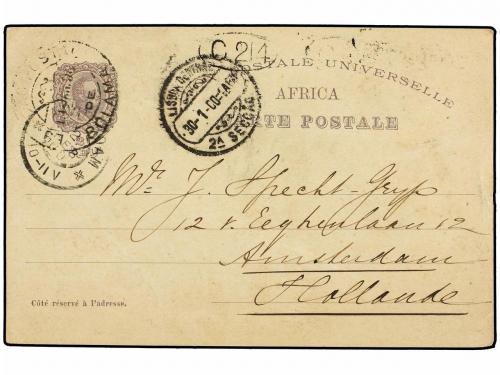 C 21
POSTALE UNIVERSELLE
AFRICA
CARTE POSTALE
BOLAMA
LISBOA
30-1-00
2A SECÇÃO
Mr. J. Specht-Gryp
12 v. Eeghenlaan 12
Amsterdam
Hollande
Côté réservé à l'adresse.